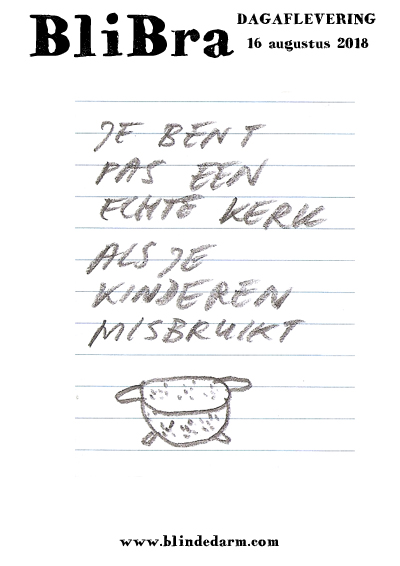 BliBra
DAGAFLEVERING
16 augustus 2018
JE BENT
PAS EEN
ECHTE KERK
ALS JE
KINDEREN
MISBRUIKT
www.blindedarm.com